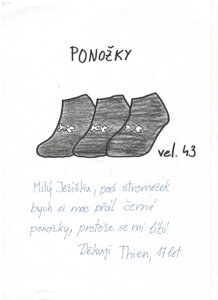 PONOŽKY
vel. 43
Milý Ježíšku, pod stromeček
bych si moc přál černé
ponožky, protože se mi líbí.
Děkuji Thien, 17 let